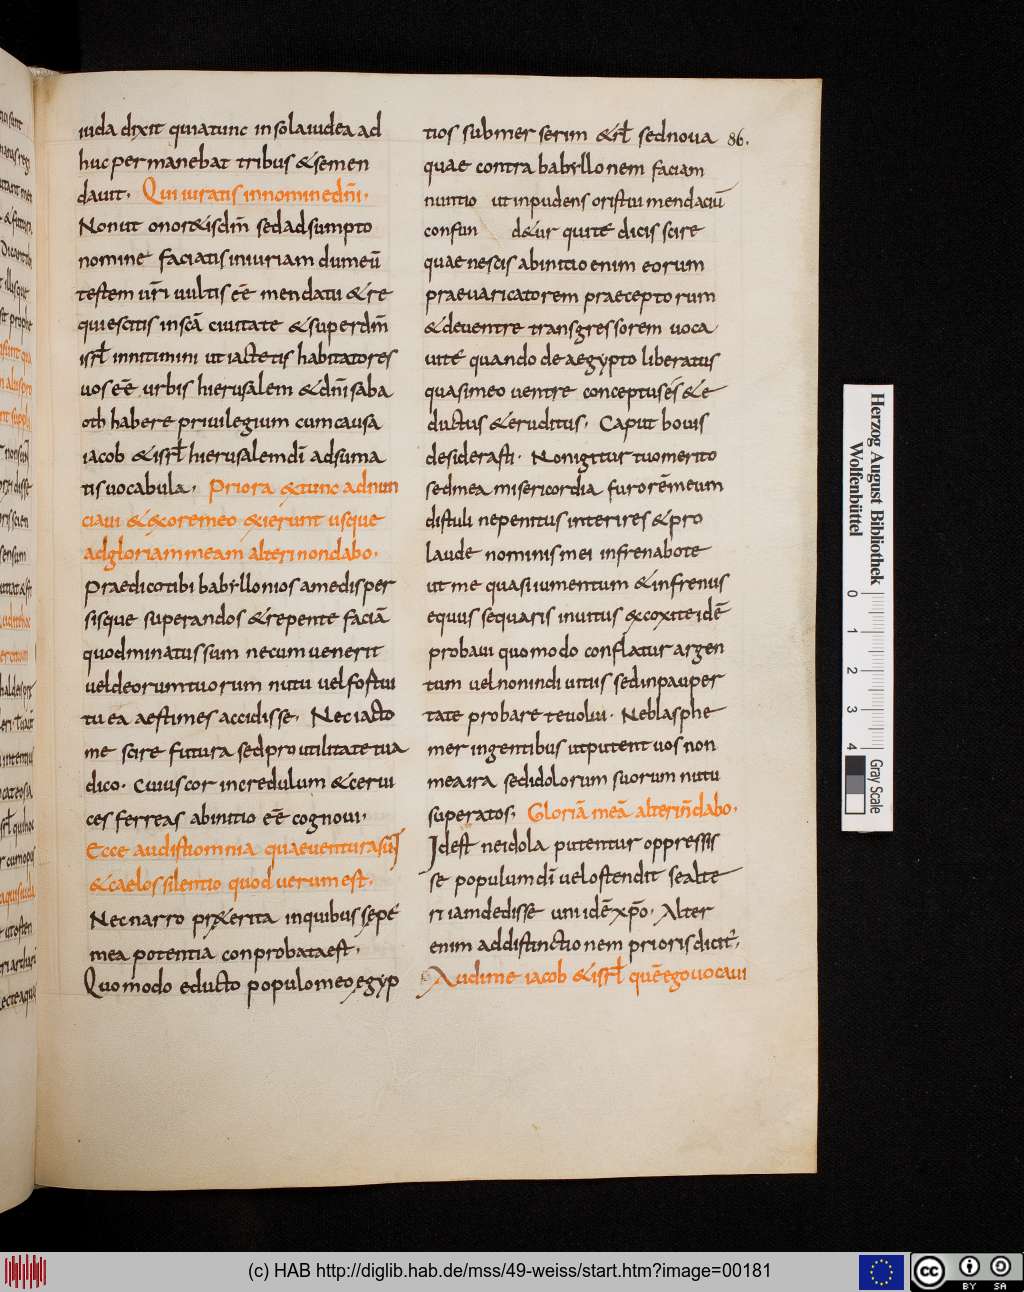 iuda dixit quiatunc insolaiudea ad
huc permanebat tribus &semen
dauit. Qui iuratis innominedn̄i.
Nonut onor&isdn̄m sedadsumpto
nomine faciatis iniuriam dumeū
testem ur̄i uultis eē mendatii &re
quiescitis inscā ciuitate &superdn̄m
isrƚ innitimini utiactetis habitatores
uos eē urbis hierusalem &dn̄i saba
oth habere priuilegium cumcausa
iacob &isrƚ hierusalemdī adsuma
tis uocabula. Priora &tunc adnun
ciaui &exoremeo &ierunt usque
adgloriam meam alteri nondabo.
Praedico tibi babyllonios amedis per
sisque superandos &repente faciā
quodminatus sum necum uenerit
uel deorum tuorum nutu uel fostui
tu ea aestimes accidisse. Neciacto
me scire futura sedproutilitate tua
dico. Cuius cor incredulum &cerui
ces ferreas abinitio eē cognoui.
Ecce audistiomnia quaeuenturasunt
&caelos silentio quod uerum est.
Nec narro pixerita inquibus sepe
mea potentia conprobataest.
Quomodo educto populomeo egyp
tios submerserim &irƚ sednoua 86.
quae contra babyllonem faciam
nuntio ut inpudens oris tui mendaciū
confun d&ur quite dicis scire
quae nescis abinitio enim eorum
praeuaricatorem praeceptorum
&deuentre transgressorem uoca
uite quando de aegypto liberatus
quasimeo uentre conceptus es &e
ductus &eruditus. Caput bouis
desiderasti. Nonigitur tuomerito
sedmea misericordia furorēmeum
distuli nepenitus interires &pro
laude nominis mei infrenabo te
ut me quasi iumentum &infrenus
equus sequaris inuitus &coxiteidē
probaui quomodo conflatur argen
tum uel nonindiuitiis sedinpauper
tate probare teuolui. Neblasphe
mer ingentibus utputent uos non
meaira sedidolorum suorum nutu
superatos; Gloriā meā alterin̄dabo.
Idest neidola putentur oppressis
se populum dī uelostendit sealte
ri iamdedisse uniidē xp̄o. Alter
enim addistinctionem prioris dicit̄.
Audime iacob &isrƚ quēegouocaui
Herzog August Bibliothek
Wolfenbüttel
0 1 2 3 4
Gray Scale
(c) HAB http://diglib.hab.de/mss/49-weiss/start.htm?image=00181
cc BY SA